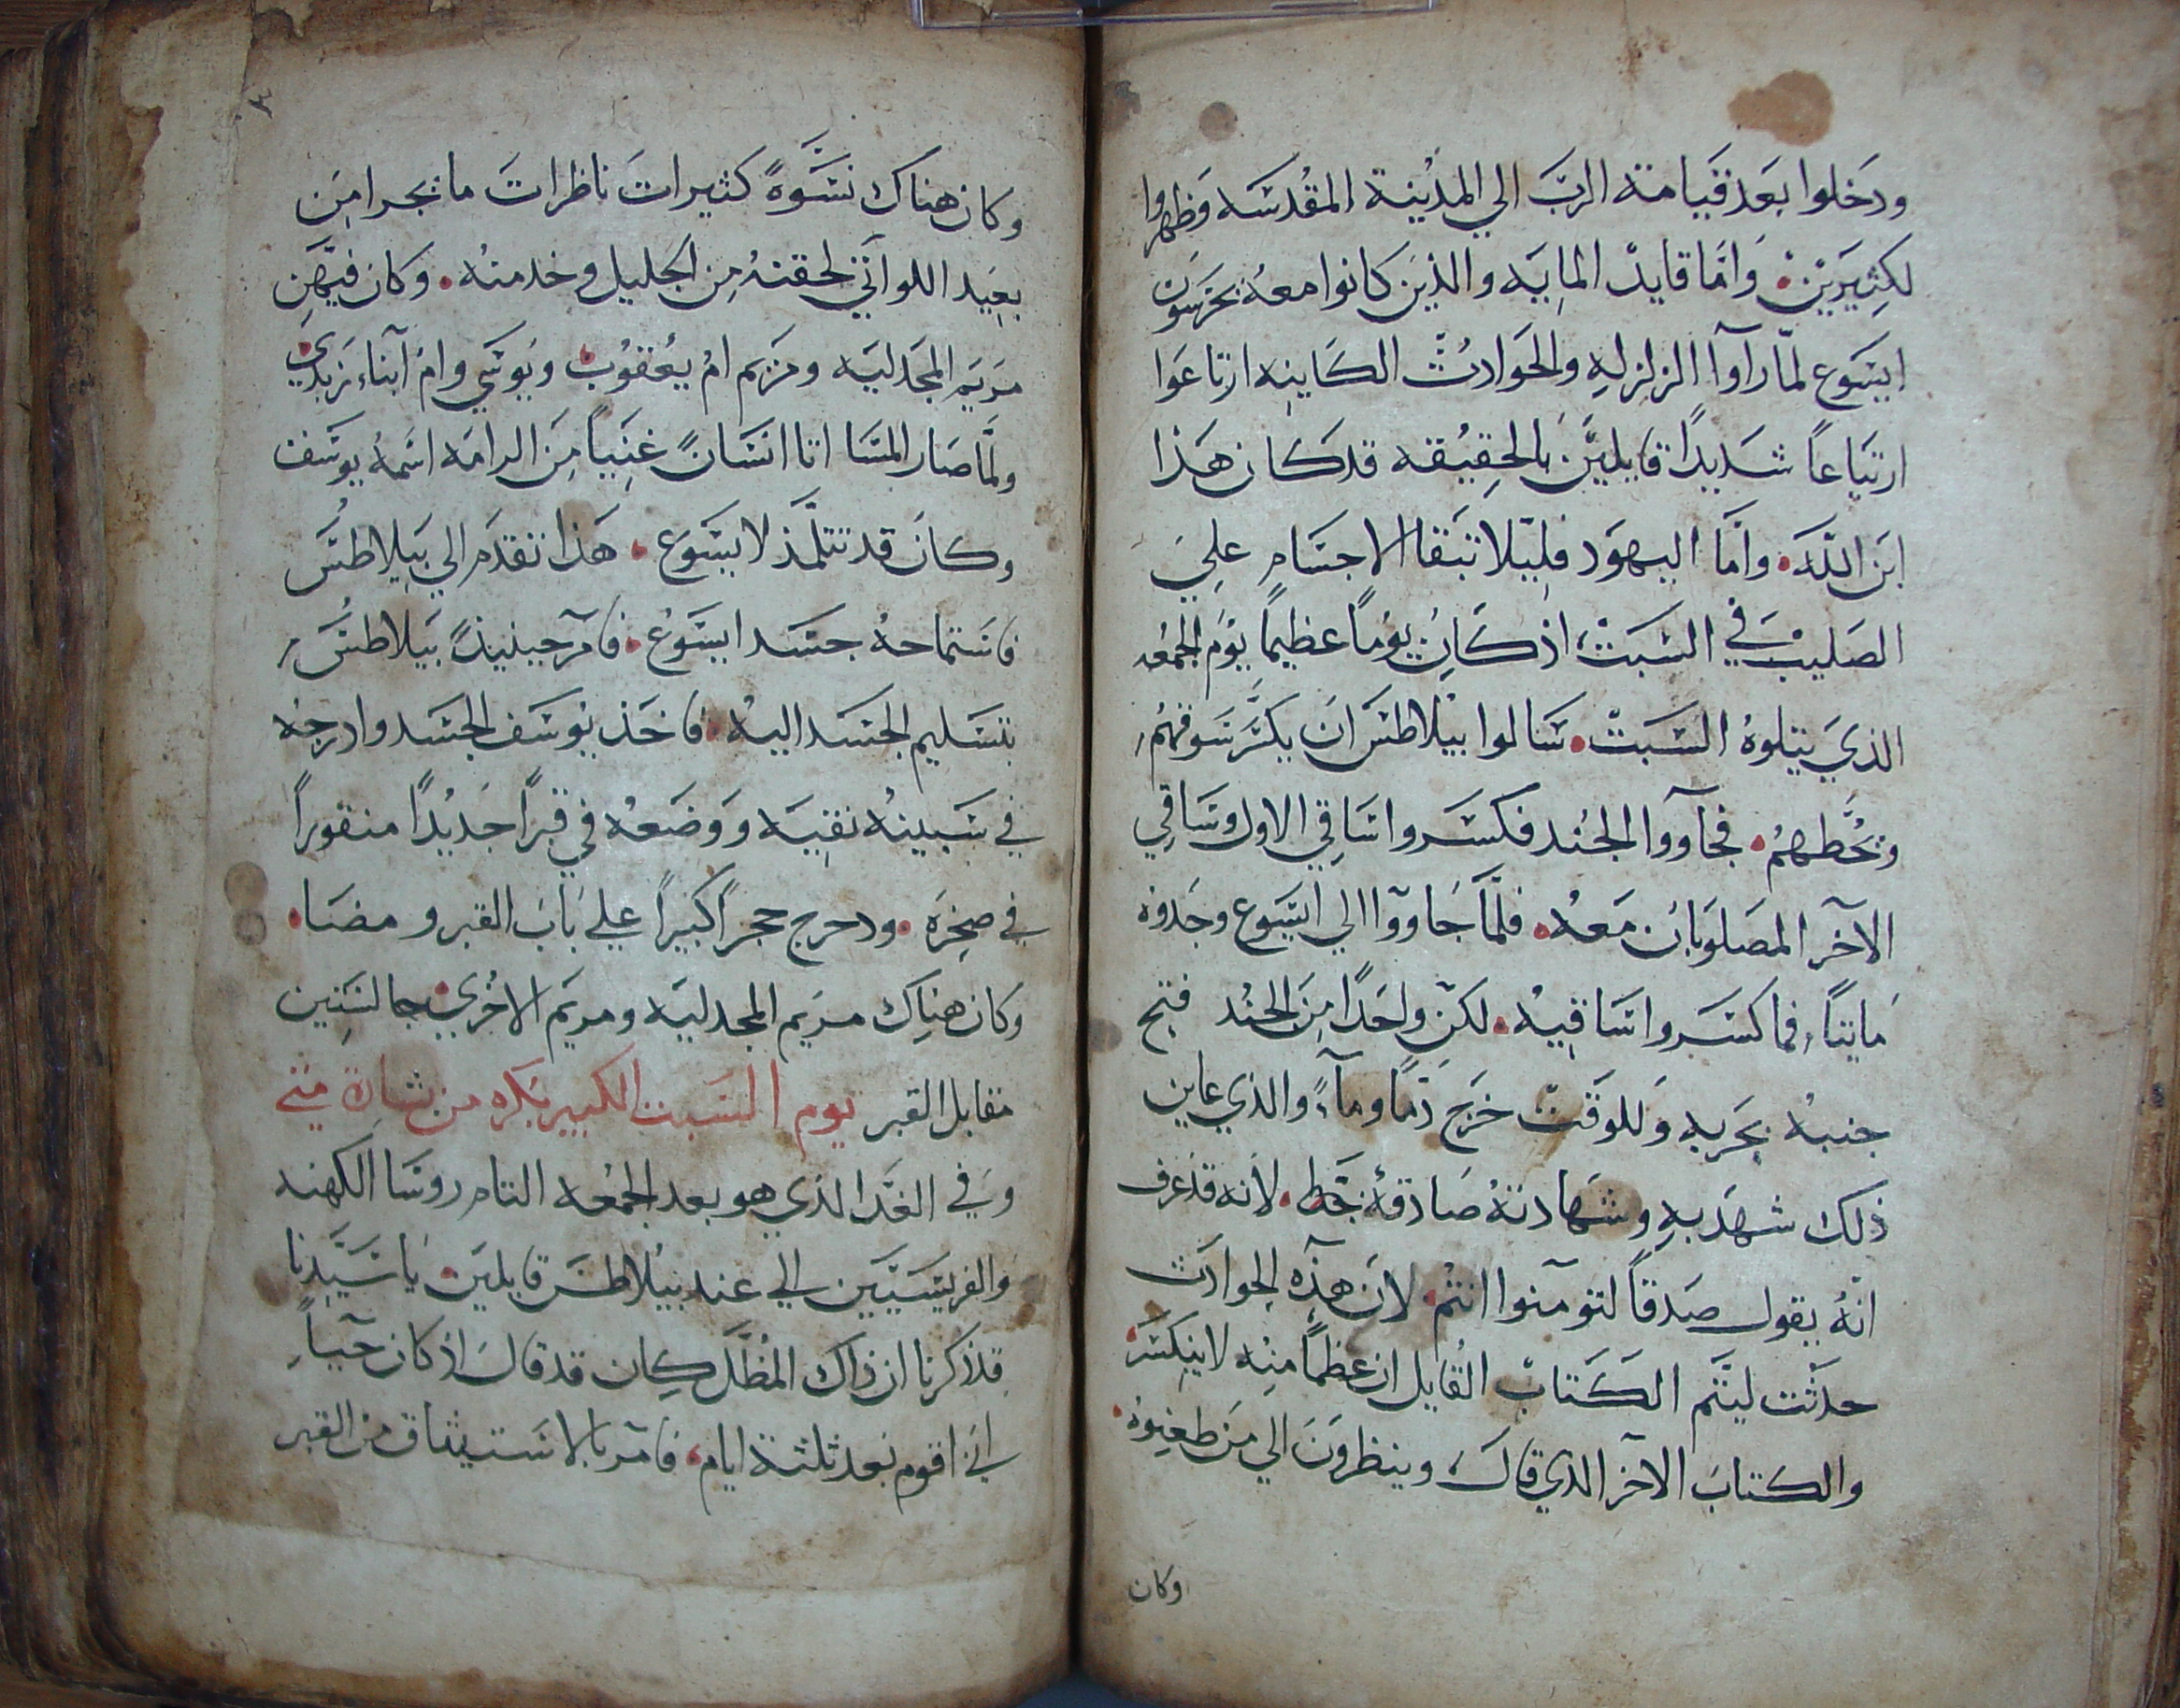 ودخلوا بعد قيامته الرب الي المدينة المقدسه وظهروا
لكثيريين. واما قايد المايه والذين كانوا معه يحرسون
ايسوع لما راوآ الزلزله والحوادث الكاينه ارتاعوا
ارتياعاً شديداً قايلين بالحقيقه قد كان هذا
ابن الله. واما اليهود فليلا تبقا الاجسام علي
الصليب في السبت اذ كان يوماً عظيماً يوم الجمعه
الذي يتلوه السبت. سالوا بيلاطس ان يكسر سوقهم
ويحطهم. فجآووا الجند فكسروا ساقي الاول وساقي
الآخر المصلوبان معه. فلما جاووا الي ايسوع وجدوه
مايتاً فما كسروا ساقيه. لكن واحداً من الجند فتح
جنبه بحربه وللوقت خرج دماً ومآءً والذي عاين
ذلك شهد به وشهادته صادقة بحط. لانه قد عرف
انه يقول صدقاً لتومنوا انتم. لان هذه الحوادث
حدثت ليتم الكتاب القايل ان عظماً منه لا ينكسر.
والكتاب الآخر الذي قال وينظرون الي من طعنوه.
وكان
٣
وكان هناك نسوةً كثيرات ناظرات ما يجرا من
بعيد اللواتي لحقنه من الجليل وخدمنه. وكان فيهن
مريم المجدليه ومريم ام يعقوب ويوسي وام آبناء زبدي
ولما صار المسا اتا انسانً غنياً من الرامه اسمه يوسف
وكان قد تتلمذ لايسوع. هذا تقدم الي بيلاطس
فاستماحه جسد ايسوع. فآمر حينيذٍ بيلاطس
بتسليم الجسد اليه. فاخذ يوسف الجسد وادرجه
في سبينه نقيه ووضعه في قبراً جديداً منقوراً
في صخره. ودحرج حجراً كبيراً علي باب القبر ومضا.
وكان هناك مريم المجدليه ومريم الاخري جالستين
مقابل القبر يوم السبت الكبير بكره من بشارة متي
وفي الغدا الذي هو بعد الجمعه التام روسا الكهنه
والفريسيين الي عند بيلاطس قايلين يا سيدنا
قد ذكرنا ان ذاك المظل كان قد قال اذ كان حياً
اني اقوم بعد ثلثة ايام. فآمر بالاستيثاق من القبر